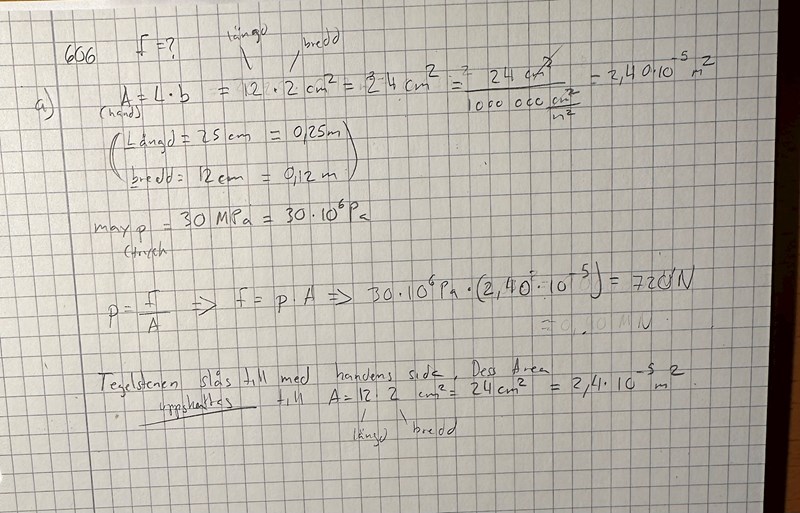 606 f=? längd bredd
a) A = L · b = 12 · 2 cm² = 24 cm² = 24 cm² / 1000 000 cm²/m² = 2,40·10⁻⁵ m²
(hand)
(Längd = 25 cm = 0,25m
bredd = 12 cm = 0,12 m)
max p = 30 MPa = 30·10⁶ Pa
(tryck
p = f/A => f = p · A => 30·10⁶ Pa · (2,40 · 10⁻⁵) = 720 N
MN
Tegelstenen slås till med handens sida. Dess Area
uppskattas till A = 12 · 2 cm² = 24 cm² = 2,4·10⁻⁵ m²
längd bredd